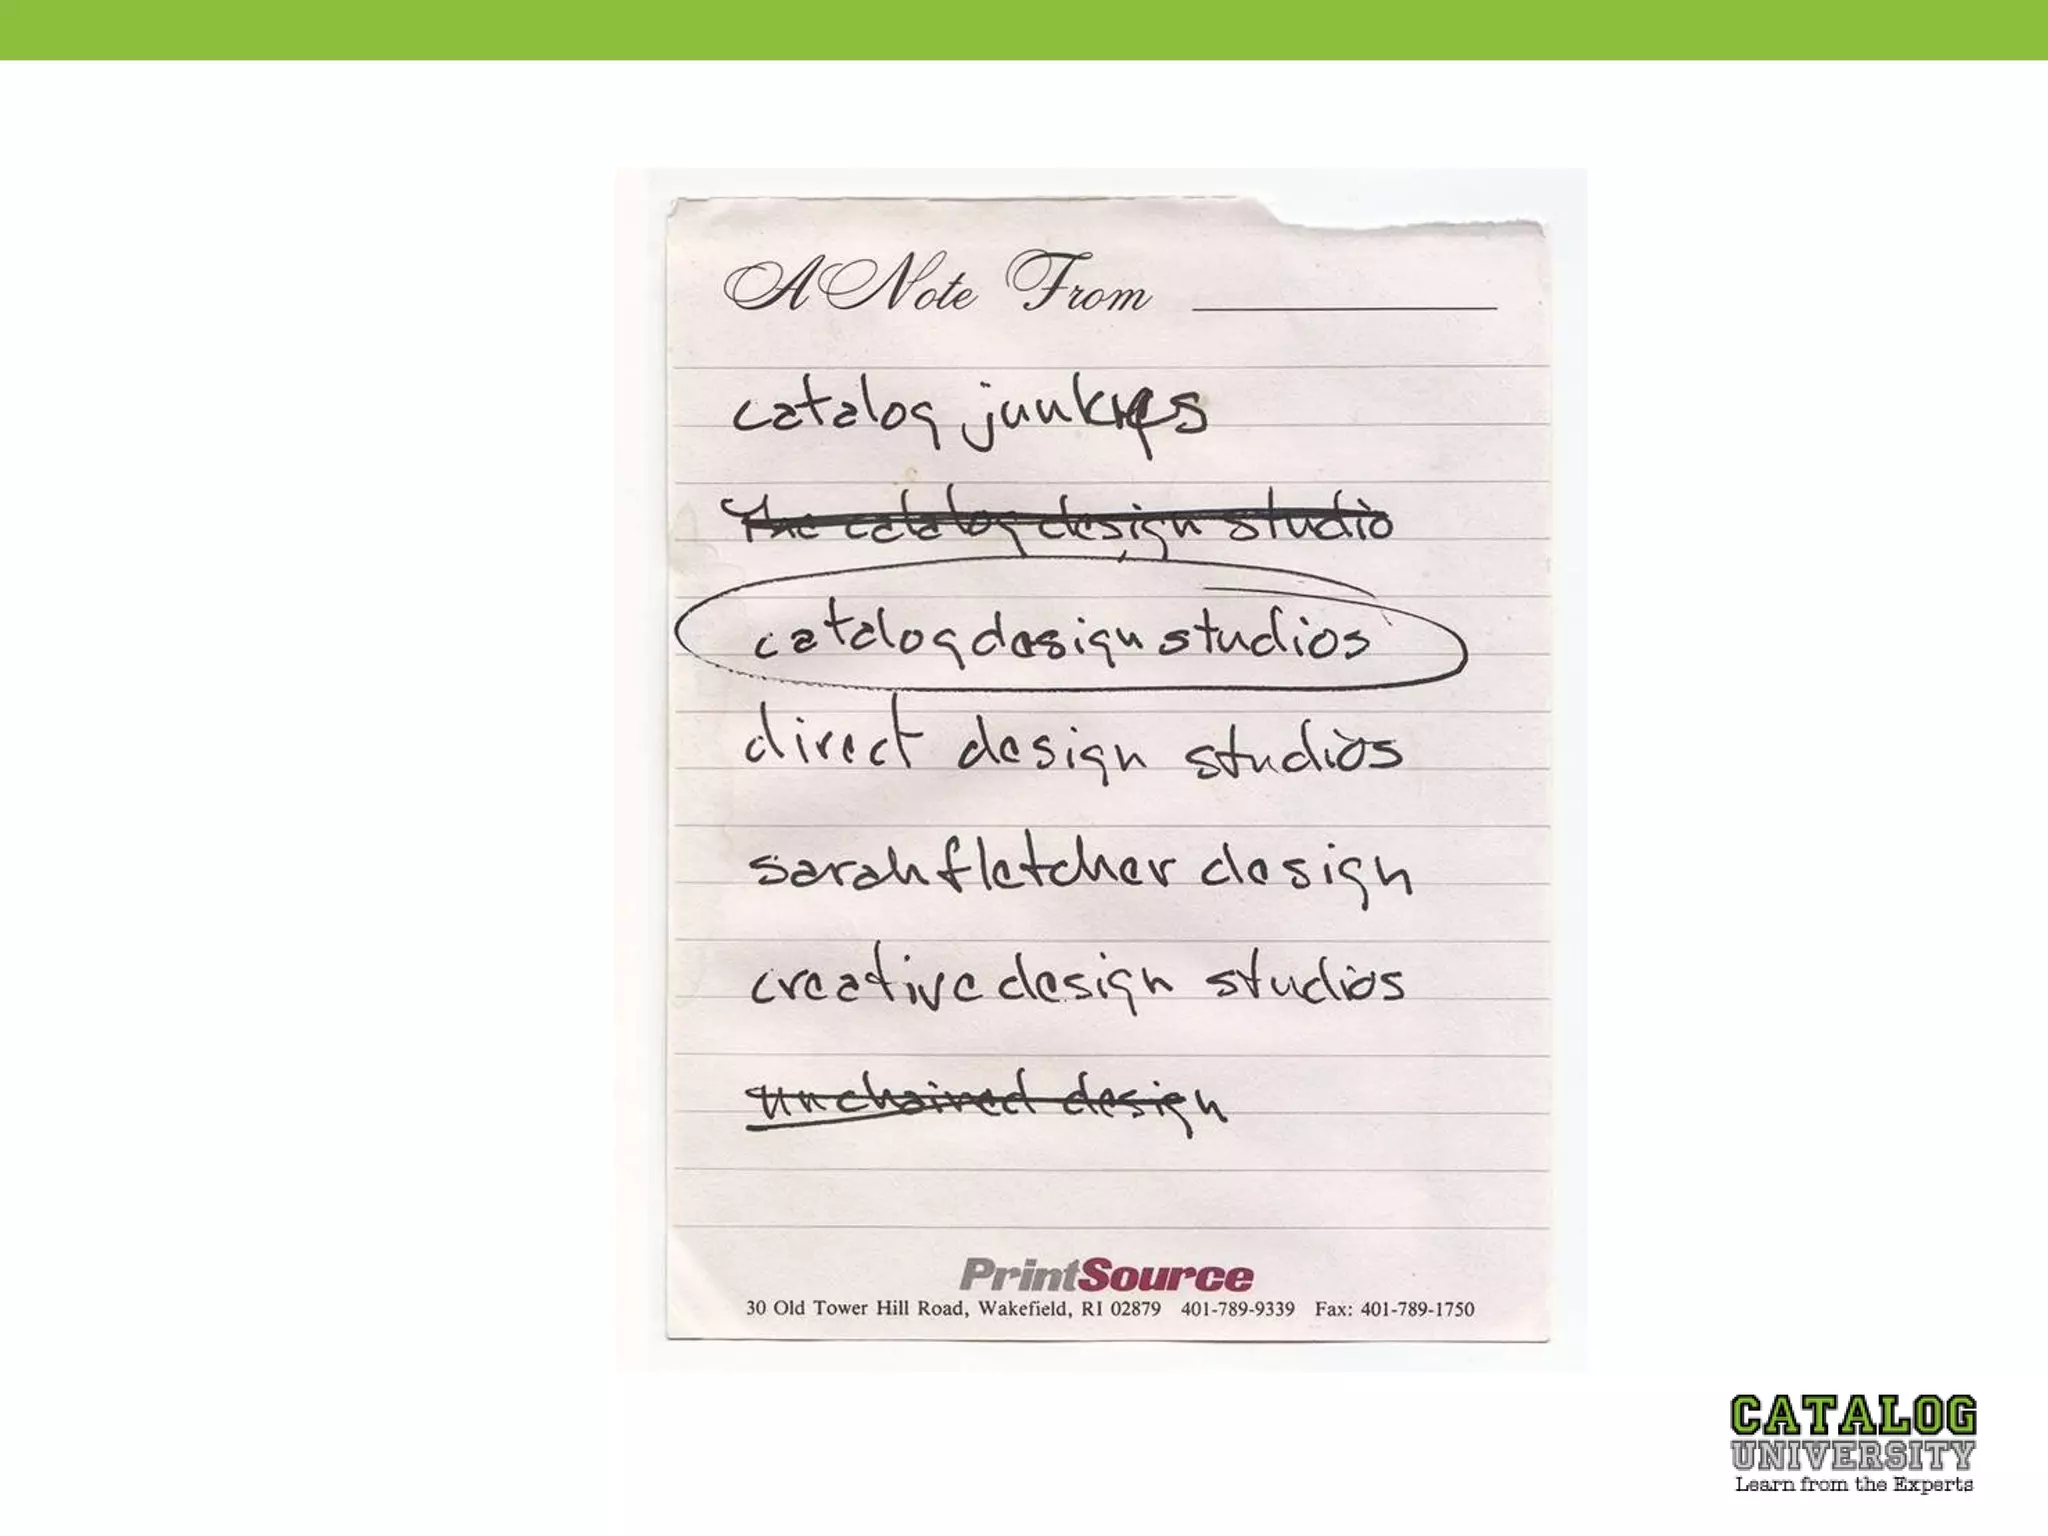 A Note From
catalog junkies
The catalog design studio
catalogdesignstudios
direct design studios
sarahfletcher design
creativedesign studios
unchained design
PrintSource
30 Old Tower Hill Road, Wakefield, RI 02879 401-789-9339 Fax: 401-789-1750
CATALOG
UNIVERSITY
Learn from the Experts